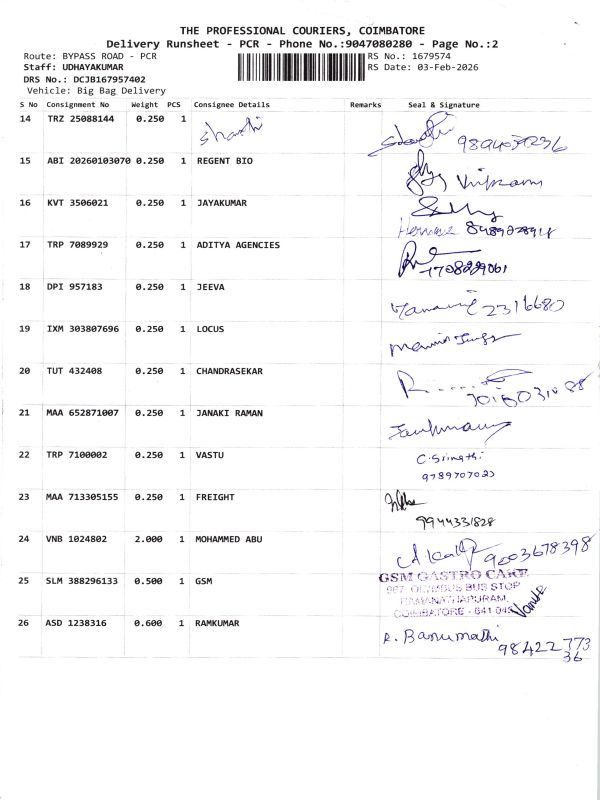 THE PROFESSIONAL COURIERS, COIMBATORE
Delivery Runsheet - PCR - Phone No.:9047080280 - Page No.:2
Route: BYPASS ROAD - PCR RS No.: 1679574
Staff: UDHAYAKUMAR RS Date: 03-Feb-2026
DRS No.: DCJB167957402
Vehicle: Big Bag Delivery
S No Consignment No Weight PCS Consignee Details Remarks Seal & Signature
14 TRZ 25088144 0.250 1
15 ABI 20260103070 0.250 1 REGENT BIO
16 KVT 3506021 0.250 1 JAYAKUMAR
17 TRP 7089929 0.250 1 ADITYA AGENCIES
18 DPI 957183 0.250 1 JEEVA
2316680
19 IXM 303807696 0.250 1 LOCUS
20 TUT 432408 0.250 1 CHANDRASEKAR
21 MAA 652871007 0.250 1 JANAKI RAMAN
22 TRP 7100002 0.250 1 VASTU C. Srimathi
9789707023
23 MAA 713305155 0.250 1 FREIGHT
9944331828
24 VNB 1024802 2.000 1 MOHAMMED ABU
9003678398
25 SLM 388296133 0.500 1 GSM GSM GASTRO CARE
OLYMPUS BUS STOP
RAMANATHAPURAM,
COIMBATORE - 641 045
26 ASD 1238316 0.600 1 RAMKUMAR R. Banumathi
98422 773
36